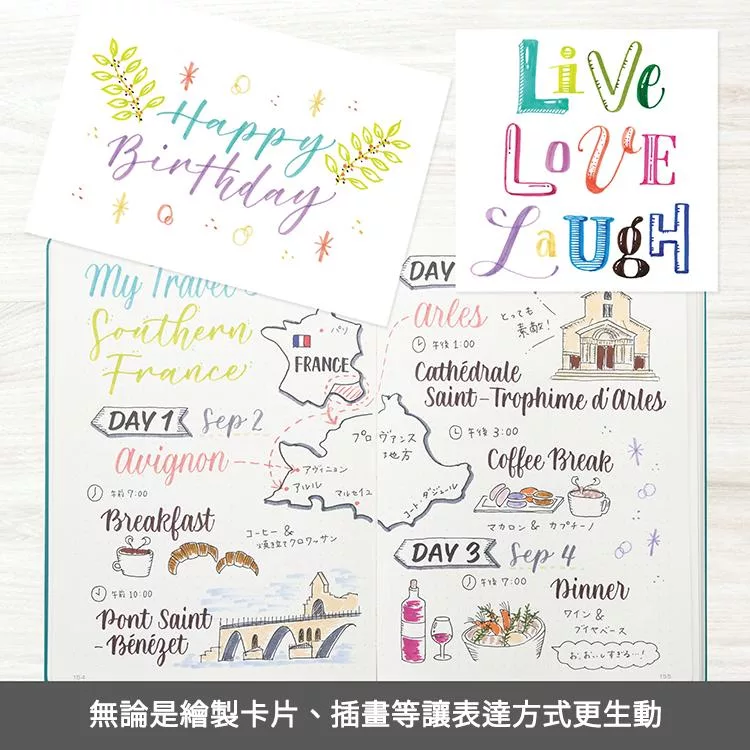 Happy
Birthday
LiVe
LoVE
LaUgH
My Travel
Southern
France
パリ
FRANCE
DAY 1 Sep 2
avignon
午前 7:00
Breakfast
コーヒー &
焼き立てクロワッサン
午前 10:00
Pont Saint
-Bénézet
プロヴァンス
地方
アヴィニョン
アルル
マルセイユ
コート・ダジュール
154
DAY
arles
とっても
素敵!
午後 1:00
Cathédrale
Saint-Trophime d'Arles
午後 3:00
Coffee Break
マカロン & カプチーノ
DAY 3 Sep 4
午後 7:00
Dinner
ワイン &
ブイヤベース
お、おいしすぎる…!
155
無論是繪製卡片、插畫等讓表達方式更生動